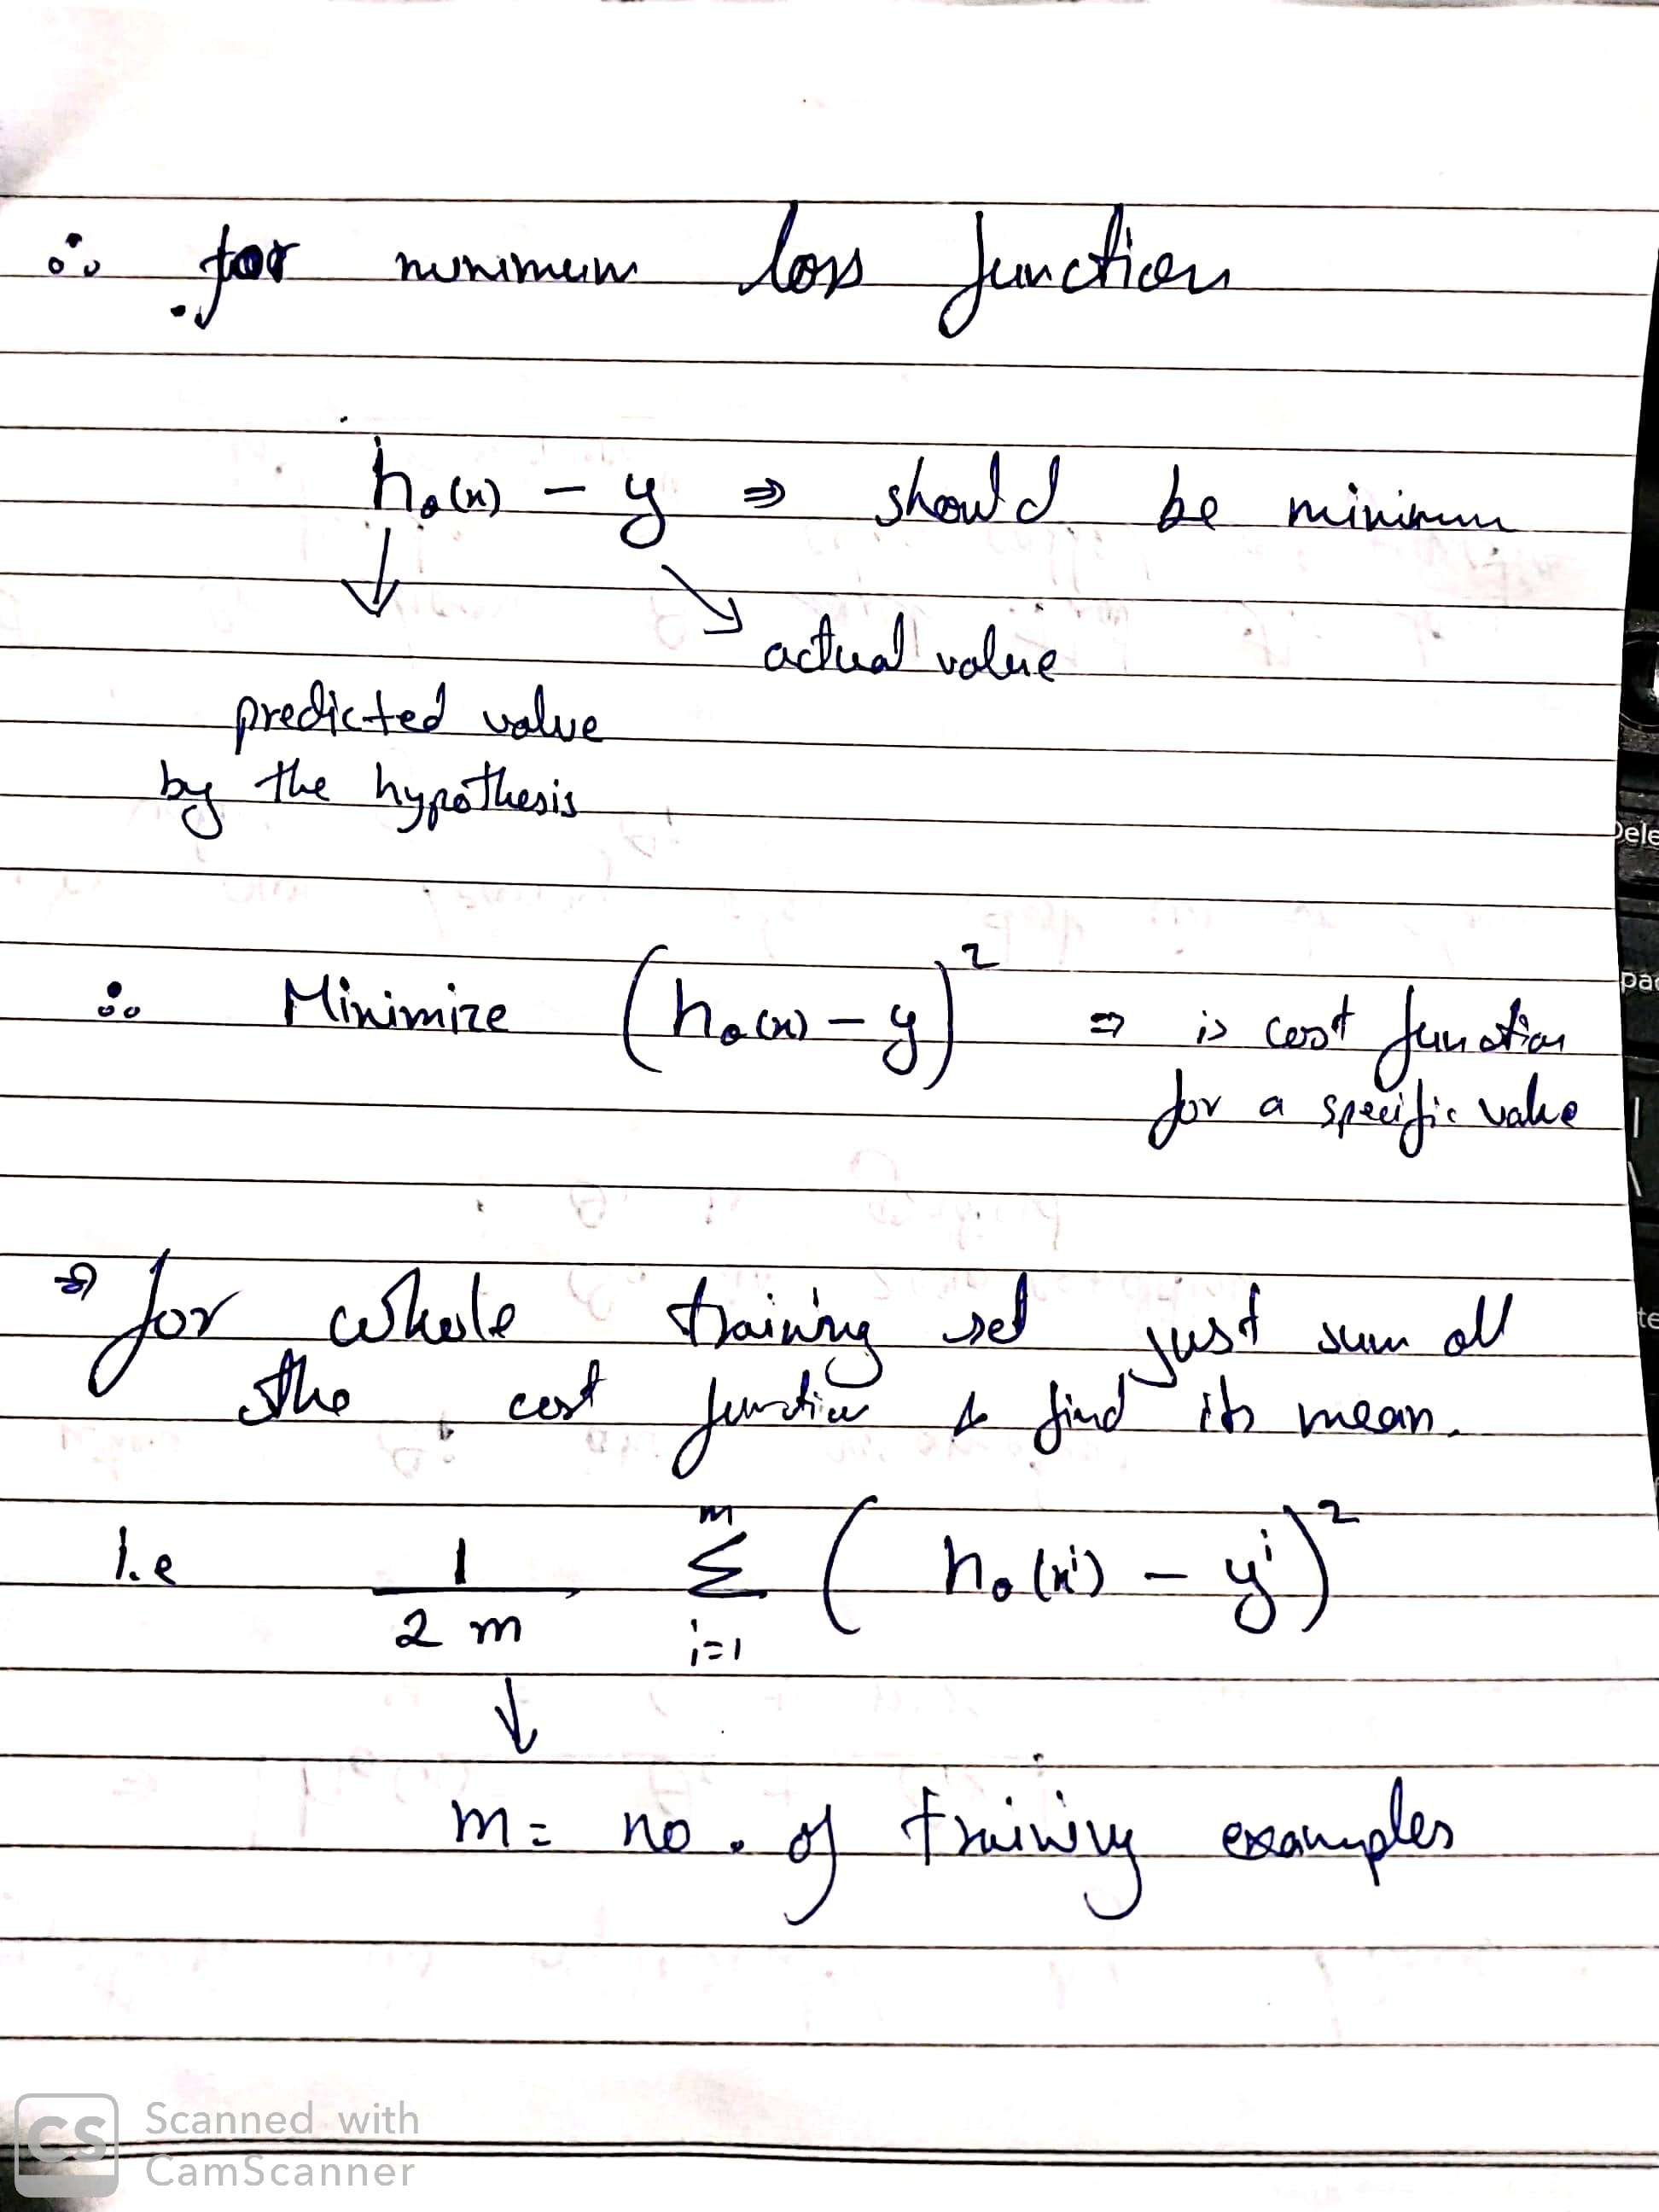 ∴ for minimum loss function
hθ(x) - y ⇒ should be minimum
actual value
predicted value
by the hypothesis
∴ Minimize (hθ(x) - y)² ⇒ is cost function
for a specific value
⇒ for whole training set just sum all
the cost function & find its mean.
i.e 1/2m Σ i=1 m (hθ(xⁱ) - yⁱ)²
m = no. of training examples
CS Scanned with
CamScanner